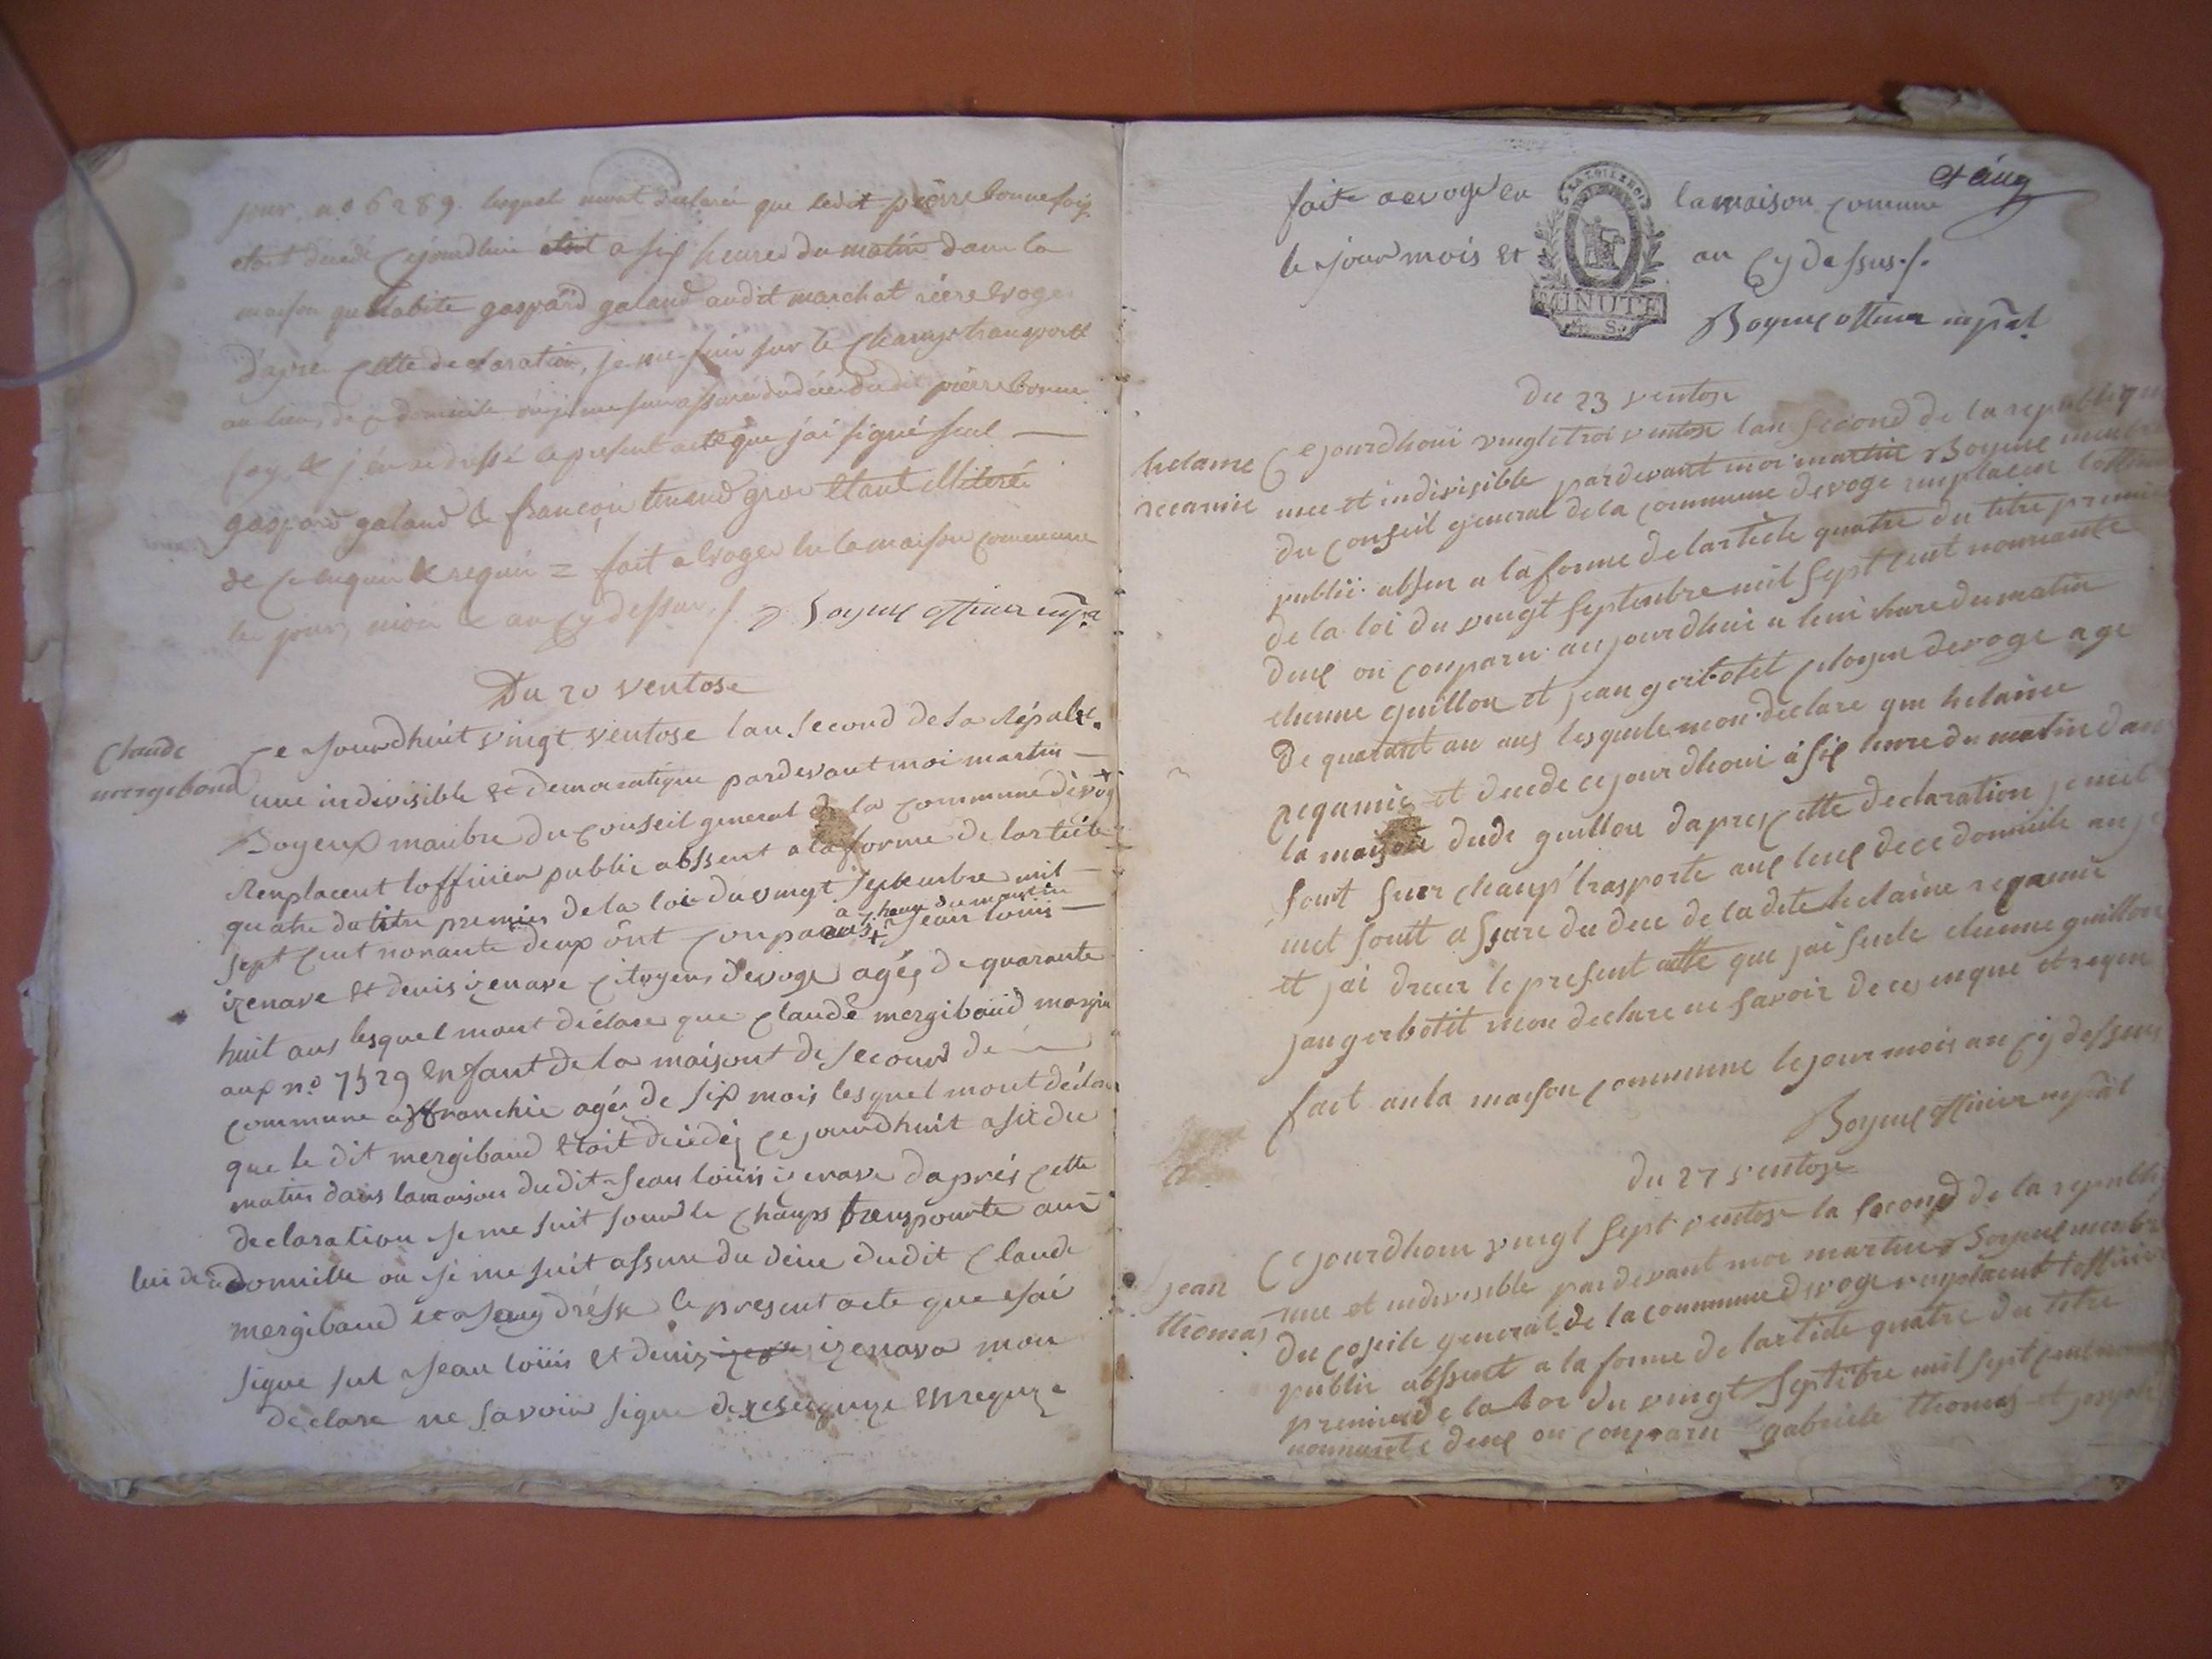 jour, no 6289. lesquel mont declarée que ledit pierre bonnefoiz
etoit décédé cejourdhui etoit a six heures du matin dans la
maison quhabite gaspard galand audit marchat riere Evoge
d'apres cette declaration, je me suis sur le champs transporté
au lieu de ce domicile où je me suis assuré du décé dudit pierre bonne
foy, & j'en ai dressé le present acte que j'ai signé seul —
gaspard galand & françois tenand gros etant illiteré
de ce enquis & requis = fait a Evoges en la maison commune
les jour, mois & an cy dessus ./. Boyeux officier mpal
Du 20 ventose
Claude
mergiband
ce Jourdhuit vingt ventose lan second de la Répabl.
une indivisible et democratique pardevant moi martin —
Boyeux manbre du conseil general de la commune dévog
Renplacent lofficier public abssent a la forme de larticle
quatre du titre premier de la loi du vingt septembre mil —
a 7 heure du matin
sept cent nonante deux ont conparus + Jean louis —
izenave et denis izenave citoyens devoge agés de quarante
huit ans lesquel mont déclare que claude mergiband margin
aux no. 7529 enfant de la maisont de secour de —
commune affranchie agée de six mois lesquel mont déclar
que le dit mergiband etoit décédéz cejourdhuit a six du
matin dans lamaison dudit Jean louis izenave daprés cette
declaration Je me suit sourd le champs trenspourte aux
lui de ce domicille ou Je me suit assure du déce dudit claude
mergiband et a Jeny drésse le present acte que Jai
signe sul Jean louis et denis izenave mon
declare ne savoir signe de ceseigunze enrequze
fait a evoge en la maison comune et anq
le jour mois et an cy dessus ./.
MINUTE
Boyeux officier mpal
Du 23 ventose
helaine
recamie
Cejourdhoui vingt troi ventose lan second de la republique
une et indivisible pardevant moi martin Boyeux menbre
du conseil general de la commune devoge remplacen loffici
public absen a la forme de larticle quatre du titre premie
de la loi du vingt septembre mil sept cent nonnante
deux on conparu aujourdhui a huis heure du matin
etienne guillon et jean gerbotet citoyen devoge age
de quarant an ans lesquele mon declare que helaine
recamie et decede cejourdhoui a six heure du matin dans
la maison dudi guillon dapres cette declaration je met
sont suer champ trasporte aux leux de ce domicile au je
met soutt assure du dece de la dite helaine recamie
et jai drecer le present acte que jai seule etienne guillon
jan gerbotit mon declare ne savoir de ces enque et reque
fait an la maison commune le jour mois an cy dessus
Boyeux officier mpal
du 27 ventose
jean
thomas
Cejourdhoui vingt sept ventose la second de la republi
une et indivisible pardevant moi martin Boyeux menbr
du coseile general de la commune devoge renplacent loffici
public abssent a la forme de larticle quatre du titre
premier de la loi du vingt septebre mil sept cent
nonnante deux on conparu gabriele thomas et joseph